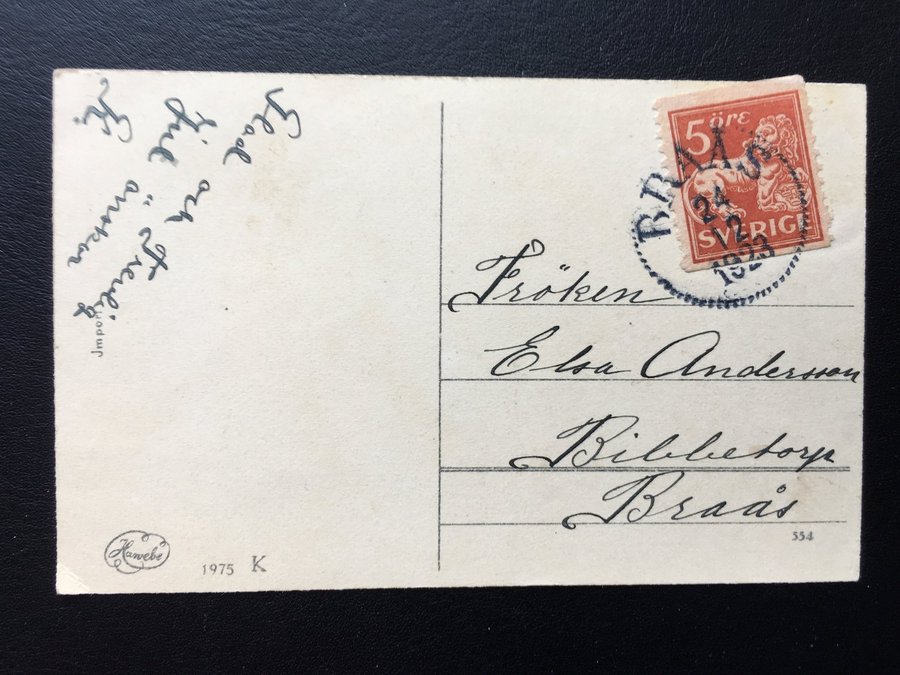 Glad och Trevlig
Jul önskar
5 öre
SVERIGE
BRAÅS
24
12
1923
Fröken
Elsa Andersson
Bibbetorp
Braås
554
Import
Hawebe
1975 K